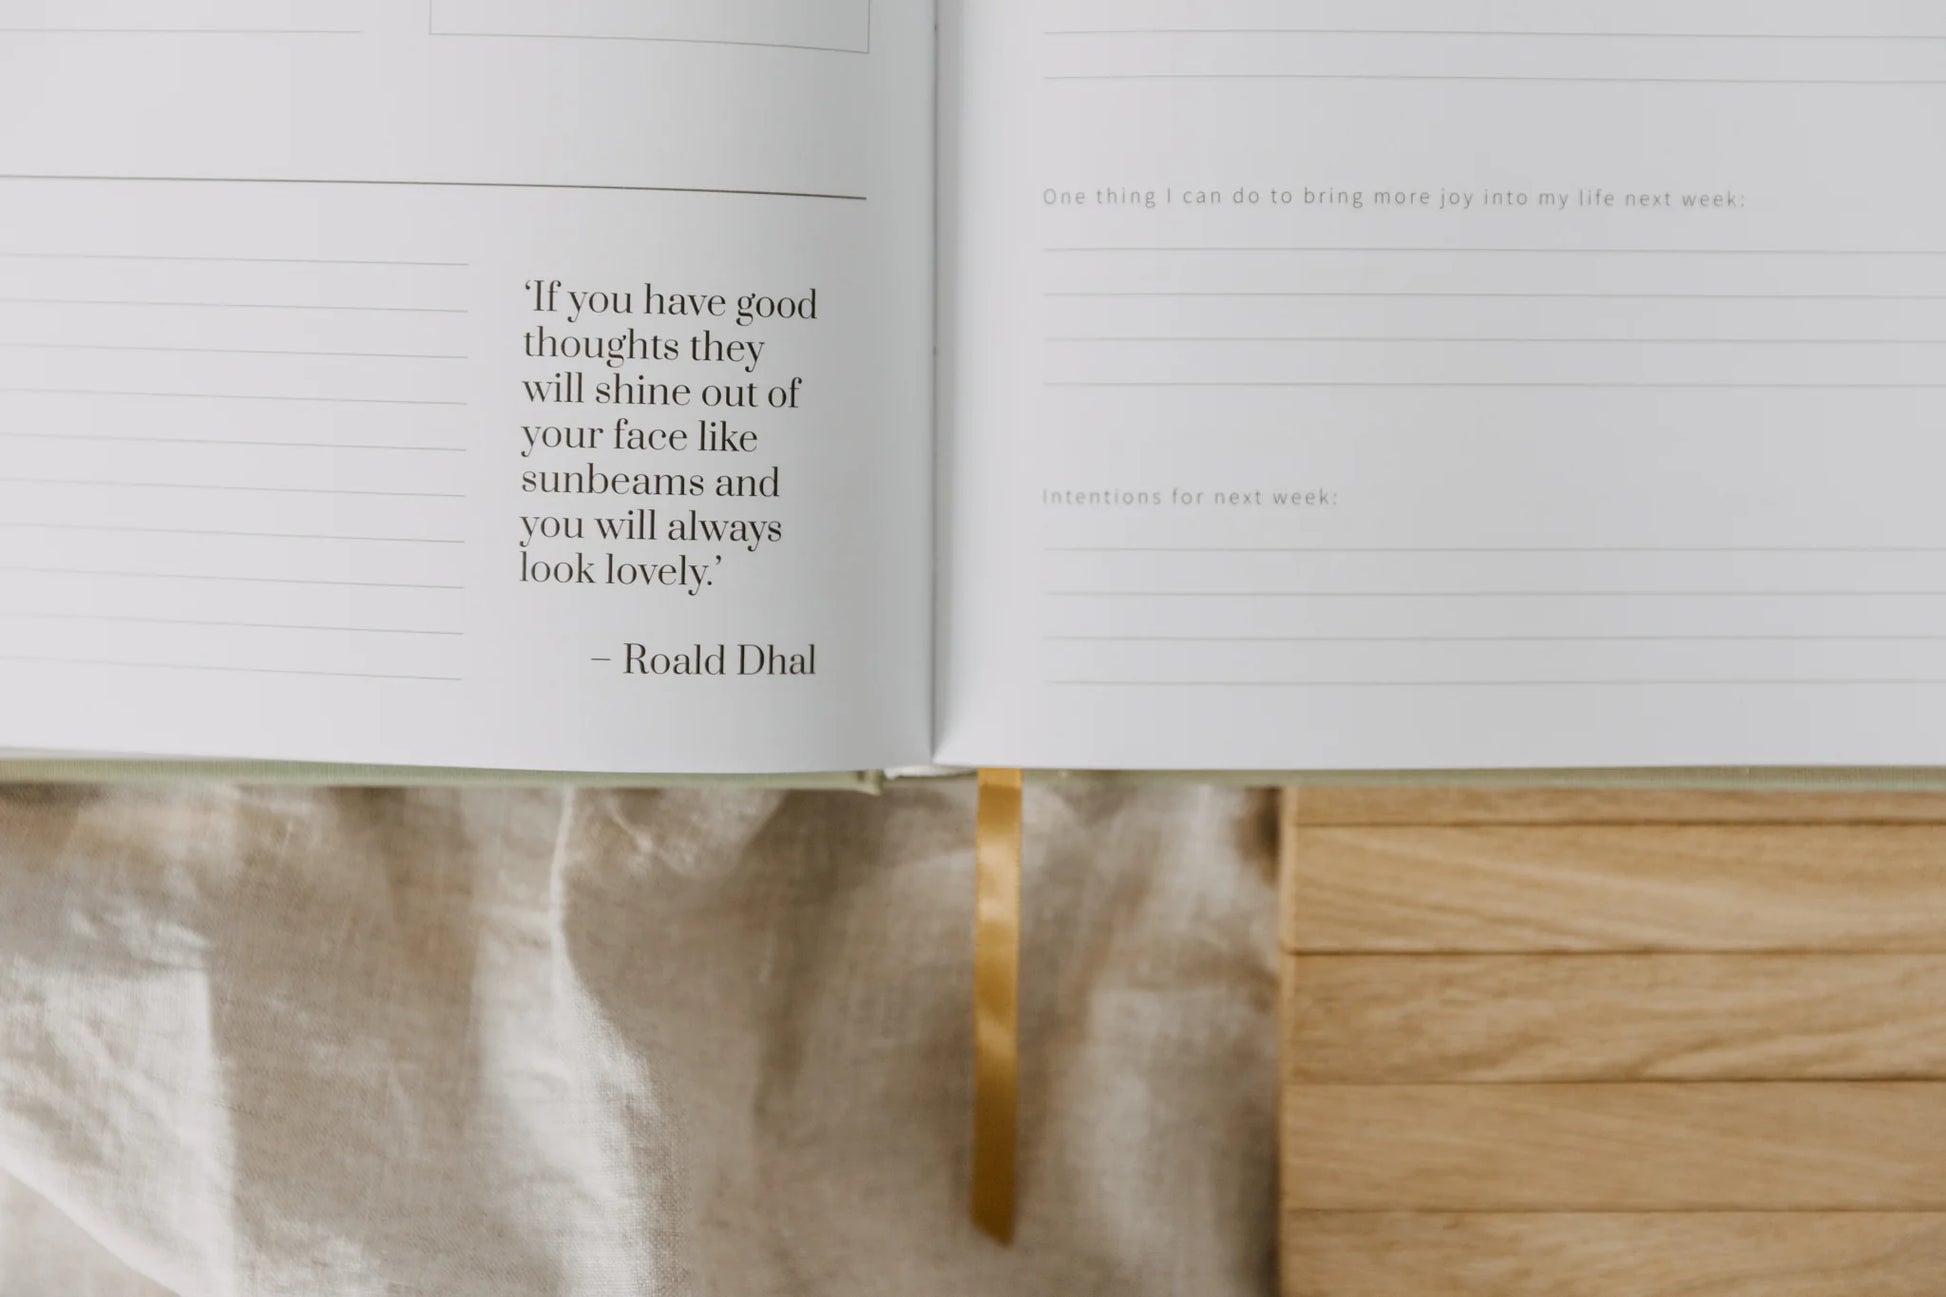 ‘If you have good
thoughts they
will shine out of
your face like
sunbeams and
you will always
look lovely.’
– Roald Dhal
One thing I can do to bring more joy into my life next week:
Intentions for next week: